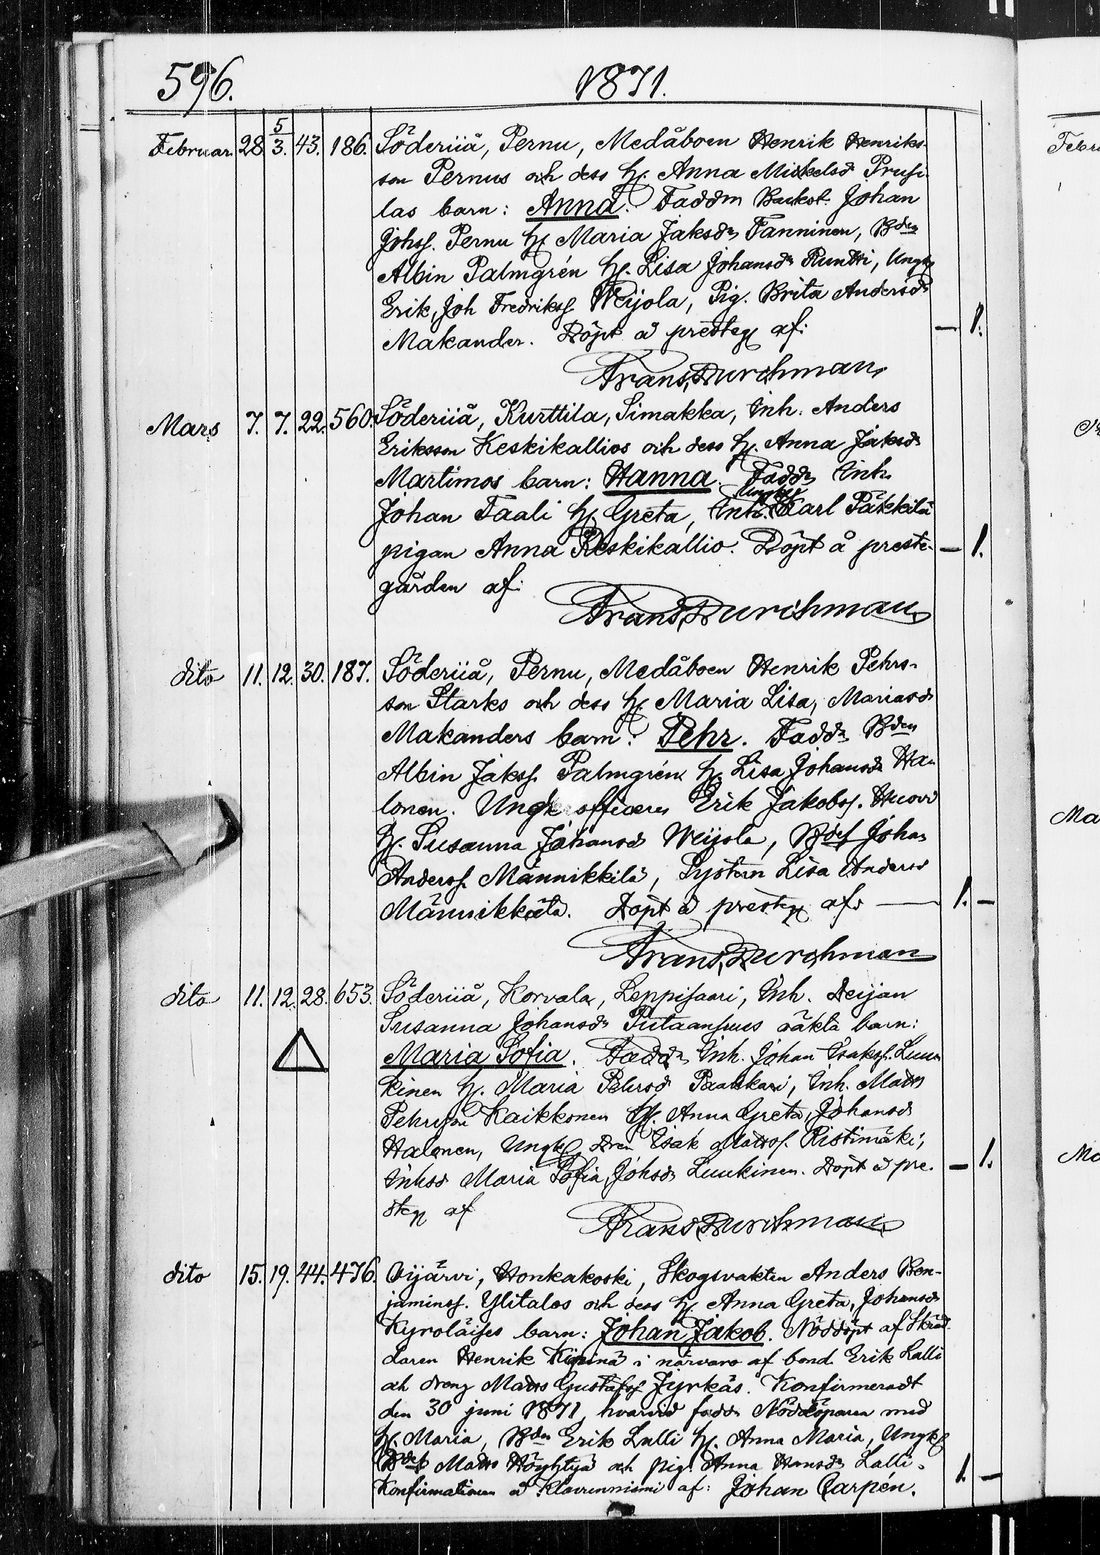 596. 1871.
Februar. 28 5/3. 43. 186. Söderiiå, Pernu, Medåboen Henrik Henriks-
son Pernus och dess H. Anna Mickelsd Prusi-
las barn: Anna. Faddrr Backst. Johan
Johss. Pernu H Maria Jaksdr Tanninen, Bden
Albin Palmgrén H. Lisa Johansdr Runtti, Ungk
Erik, Joh Fredrikss Weijola, Pig. Brita Andersdr
Makander. Döpt å presteg af: — 1.
Frans Durchman
Mars 7. 7. 22. 560. Söderiiå, Kurttila, Simakka, Inh. Anders
Eriksson Keskikallios och dess H. Anna Jaksdr
Martimos barn: Hanna. Faddr Inh.
Johan Taali H Greta, Karl Päkkilä
pigan Anna Keskikallio. Döpt å preste- — 1.
gården af:
Frans Durchman
dito 11. 12. 30. 187. Söderiiå, Pernu, Medåboen Henrik Pehrs-
son Starks och dess H Maria Lisa, Mariasdr
Makanders barn: Pehr. Faddr Bden
Albin Jakss. Palmgrén H. Lisa Johansdr Ha-
lonen. Ungk Erik Jakobss.
H. Susanna Johansd Weijola, Bdess Johan
Anderss. Männikkilä, Systern Lisa Andersd
Männikkälä. Döpt å presteg af: — 1. —
Frans Durchman
dito 11. 12. 28. 653. Söderiiå, Korvala, Leppisaari, Inh. Deijan
Susanna Johansdr oäkta barn:
Maria Sofia. Faddr Inh. Johan Isakss. Luu-
kinen H. Maria Pehrsd Paakkari, Inh. Mats
Pehrsson Kaikkonen H. Anna Greta, Johansd
Halonen, Ungk. Dren Isak Matss. Ristimäki;
Inhsd Maria Sofia, Johsdr Luukinen. Döpt å pre- — 1.
steg af
Frans Durchman
dito 15. 19. 44. 476. Oijärvi, Honkakoski, Skogsvakten Anders Ben-
jamins. Ylitalos och dess H Anna Greta, Johansdr
Kyroläises barn: Johan Jakob. Nöddöpt af Skräd-
daren Henrik Kipinä i närvaro af bond. Erik Lalli
och dreng Matts Gustafss Jyrkäs. Konfirmeradt
den 30 juni 1871, hvarvid faddr Nöddöparen med
H. Maria, Bden Erik Lalli H. Anna Maria, Ungk
Bdess Matts och pig. Anna Hansdr Lalli.
Konfirmationen å af: Johan Carpén. 1. —